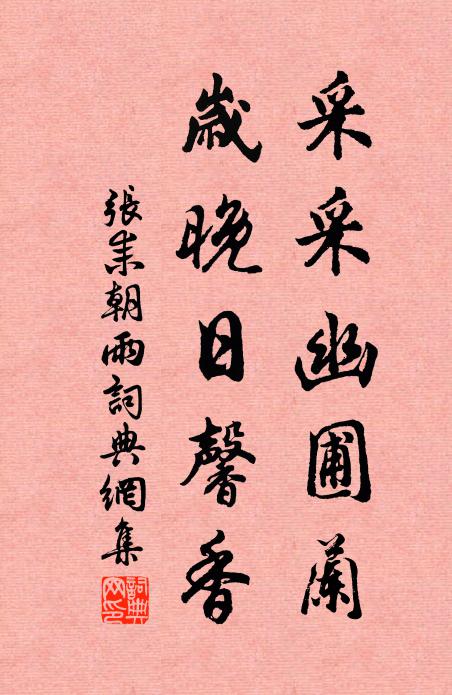 采采幽圃蘭
歲晚日馨香
張耒朝雨詞典網集
詞典网印